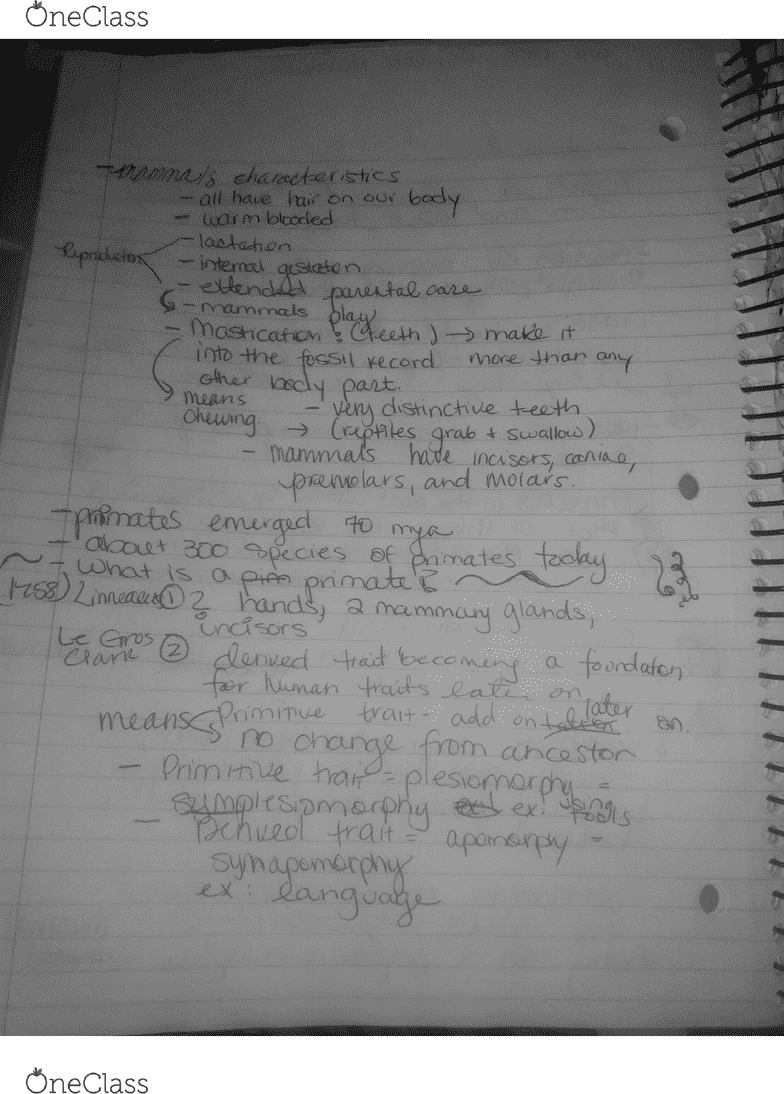 OneClass
- mammals characteristics
- all have hair on our body
- warm blooded
- lactation
Reproduction
- internal gestation
- extended parental care
- mammals play
- Mastication: (teeth) → make it
into the fossil record more than any
other body part.
means
chewing
- very distinctive teeth
→ (reptiles grab + swallow)
- mammals have incisors, canine,
premolars, and molars.
- primates emerged 70 mya
- about 300 species of primates today
- What is a primate?
(1758) Linneaus ① 2 hands, 2 mammary glands,
incisors
Le Gros
Clark ② derived trait becoming a foundation
for human traits later on
means Primitive trait - add on later on.
no change from ancestor
- Primitive trait = plesiomorphy =
symplesiomorphy ex: using
tools
- Derived trait = apomorphy =
synapomorphy
ex: language
OneClass